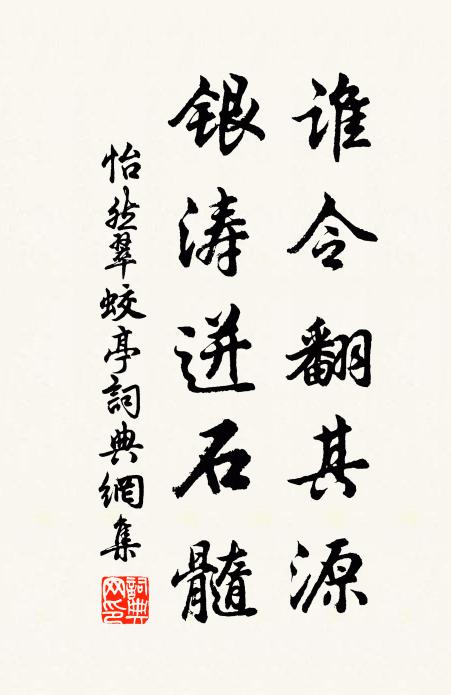 谁令翻其源
银涛迸石髓
怡然翠蛟亭詞典網集
詞典网印